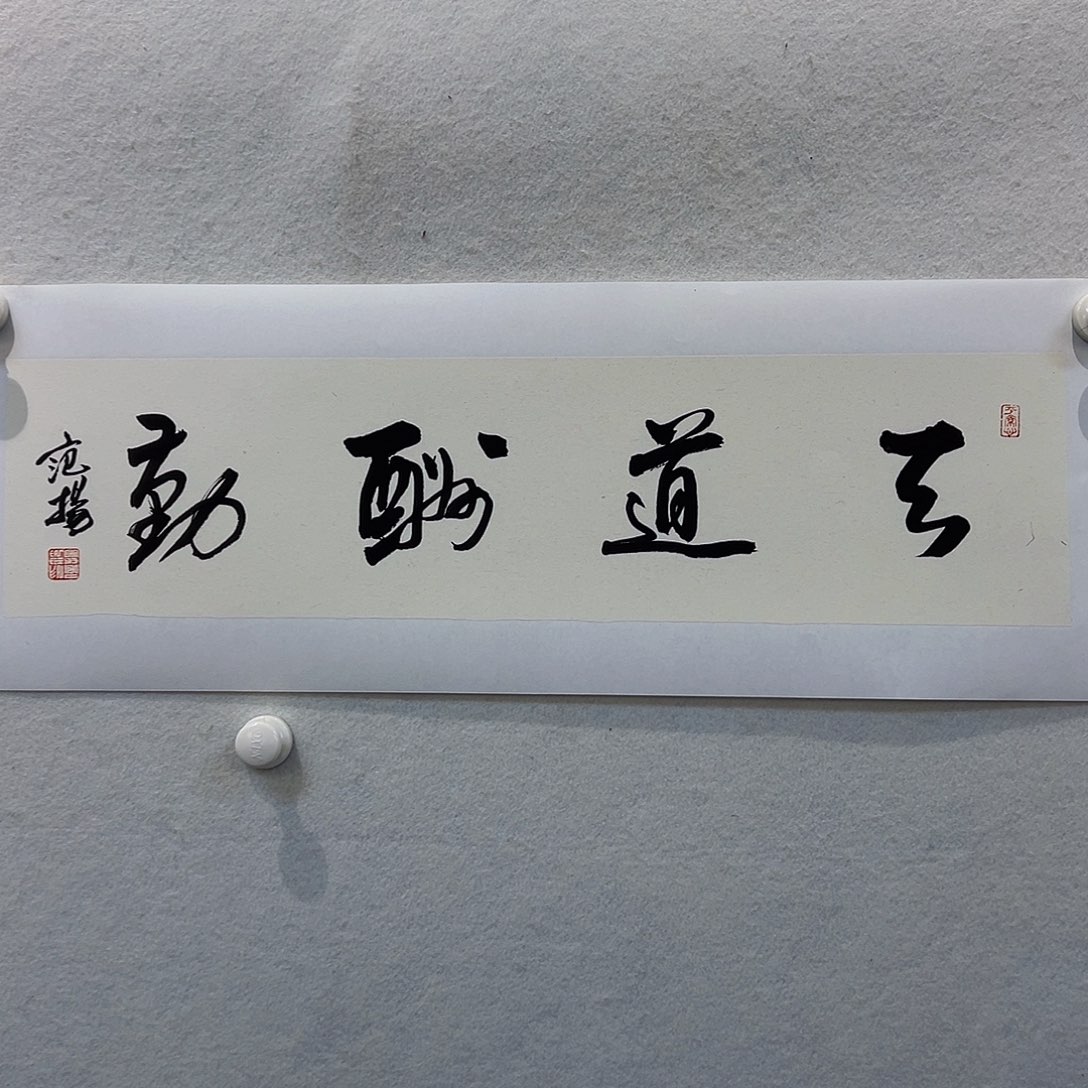 天道酬勤
范揚